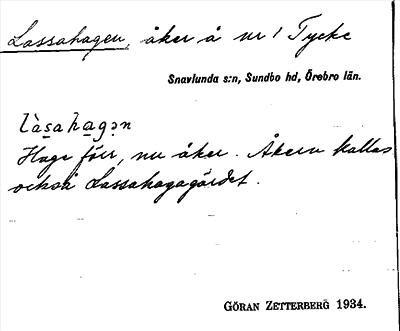 Lassahagen, åker å nr 1 Tycke
Snavlunda s:n, Sundbo hd, Örebro län.
là̱sa̱ha̱gən
Hage förr, nu åker. Åkern kallas
också Lassahagagärdet.
GÖRAN ZETTERBERG 1934.